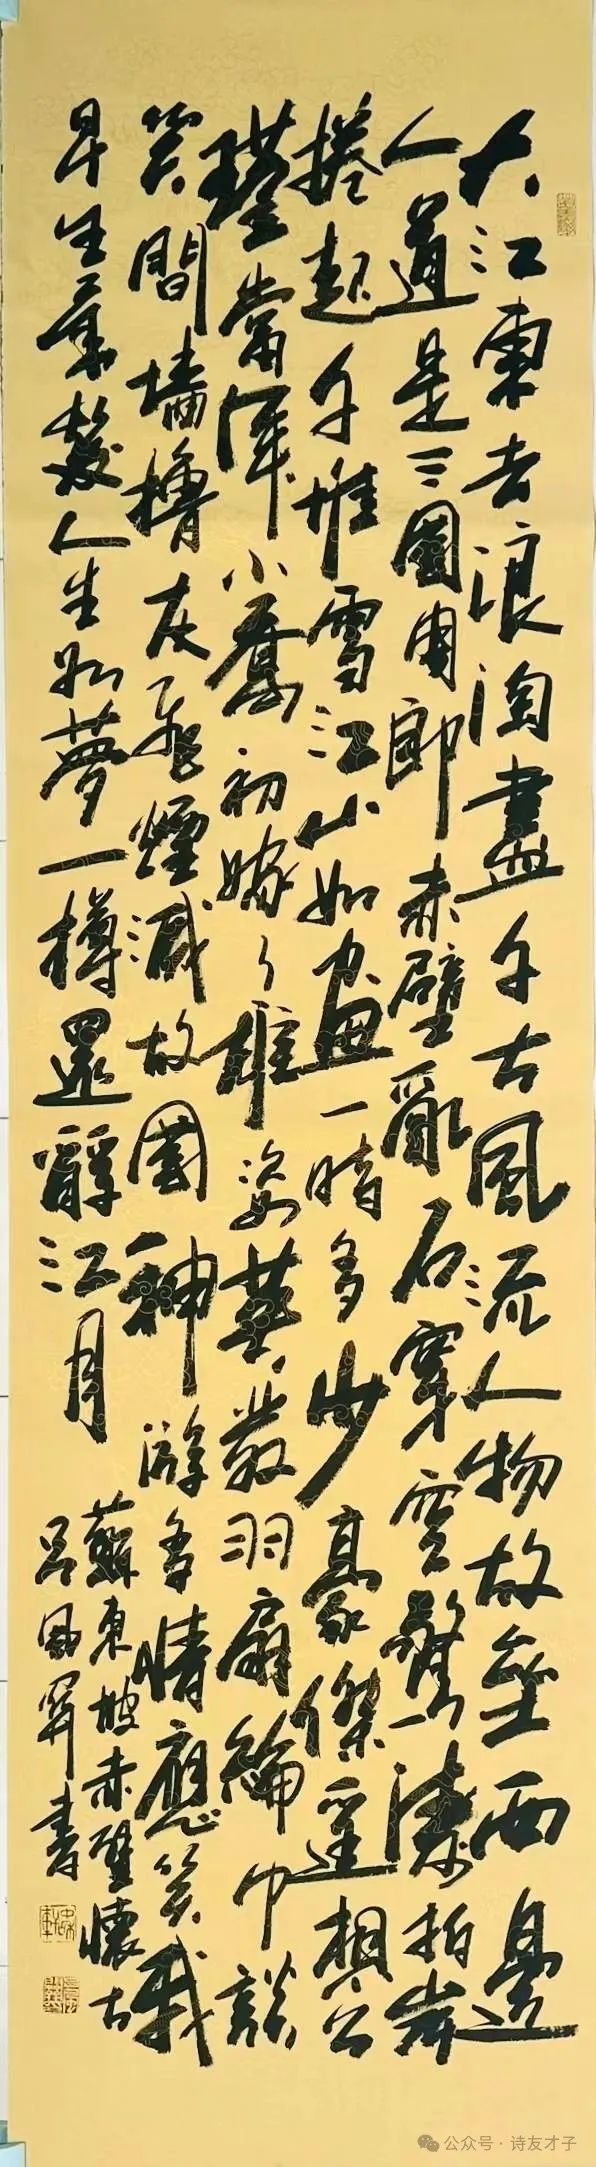 大江東去浪淘盡千古風流人物故壘西邊
人道是三國周郎赤壁亂石穿空驚濤拍岸
捲起千堆雪江山如畫一時多少豪傑遥想公
瑾當年小喬初嫁了雄姿英發羽扇綸巾談
笑間墻櫓灰飛煙滅故國神游多情應笑我
早生華髮人生如夢一樽還酹江月
蘇東坡赤壁懷古
吕 書
公众号·诗友才子